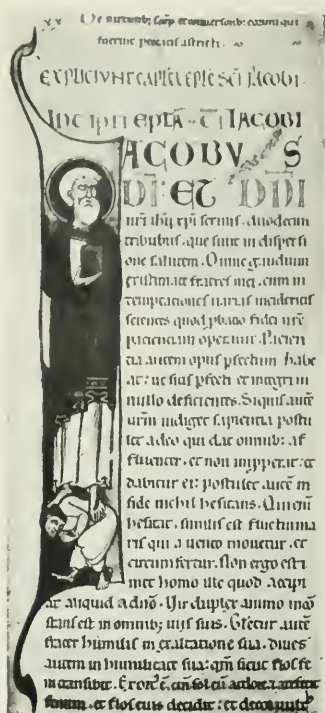 xx De
fuerint
EXPLICIVNT CAPL EPLE SCI JACOBI
INCIPIT EPTA IACOBI
IACOBVS
DI ET DNI
nri ihu xpi seruus. duodecim
tribubus. que sunt in dispersi
one salutem. Omne gaudium
existimate fratres mei. cum in
temptationes uarias incideritis
scientes quod pbatio fidei ure
patientiam operatur. Patien
tia autem opus pfectum habe
at: ut sitis pfecti et integri in
nullo deficientes. Siquis aute
urm indiget sapientia postu
let a deo qui dat omnib; af
fluenter. et non impperat: et
dabitur ei: postulet aute in
fide nichil hesitans. Qui eni
hesitat. similis est fluctui ma
ris qui a uento mouetur. et
circumfertur. Non ergo esti
met homo ille quod accipi
at aliquid a dno. Uir duplex animo inco
stans est in omnib; uiis suis. Gletur aute
frater humilis in exaltatione sua. diues
autem in humilitate sua: qm sicut flos fe
ni transibit. Exort e eni sol cu ardore. et arefecit
fenum. et flos eius decidit: et decor